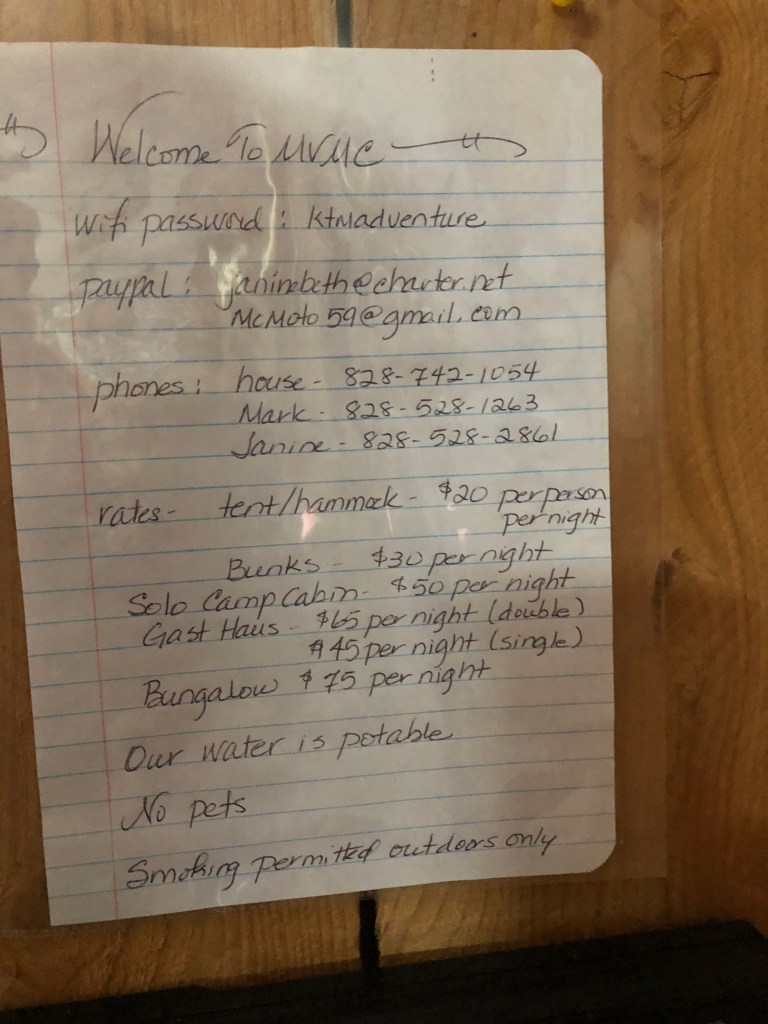 Welcome To MVMC
wifi password: ktmadventure
paypal: janinebeth@charter.net
McMoto59@gmail.com
phones: house - 828-742-1054
Mark - 828-528-1263
Janine - 828-528-2861
rates - tent/hammock - $20 per person
per night
Bunks - $30 per night
Solo Camp Cabin - $50 per night
Gast Haus - $65 per night (double)
$45 per night (single)
Bungalow $75 per night
Our water is potable
No pets
Smoking permitted outdoors only